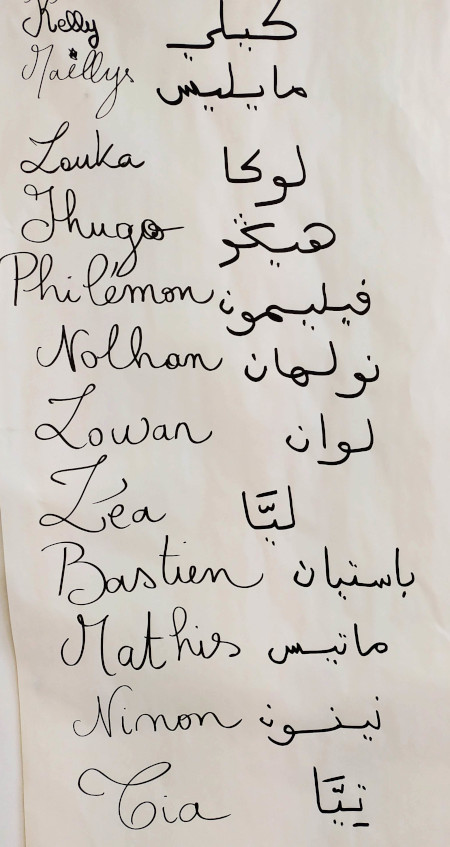 Kelly كيلي
Maëllys مايليس
Louka لوكا
Thugo هيڭو
Philémon فيليمون
Nolhan نولهان
Lowan لوان
Léa ليَّا
Bastien باستيان
Mathis ماتيس
Ninon نينون
Tia تِيَّا